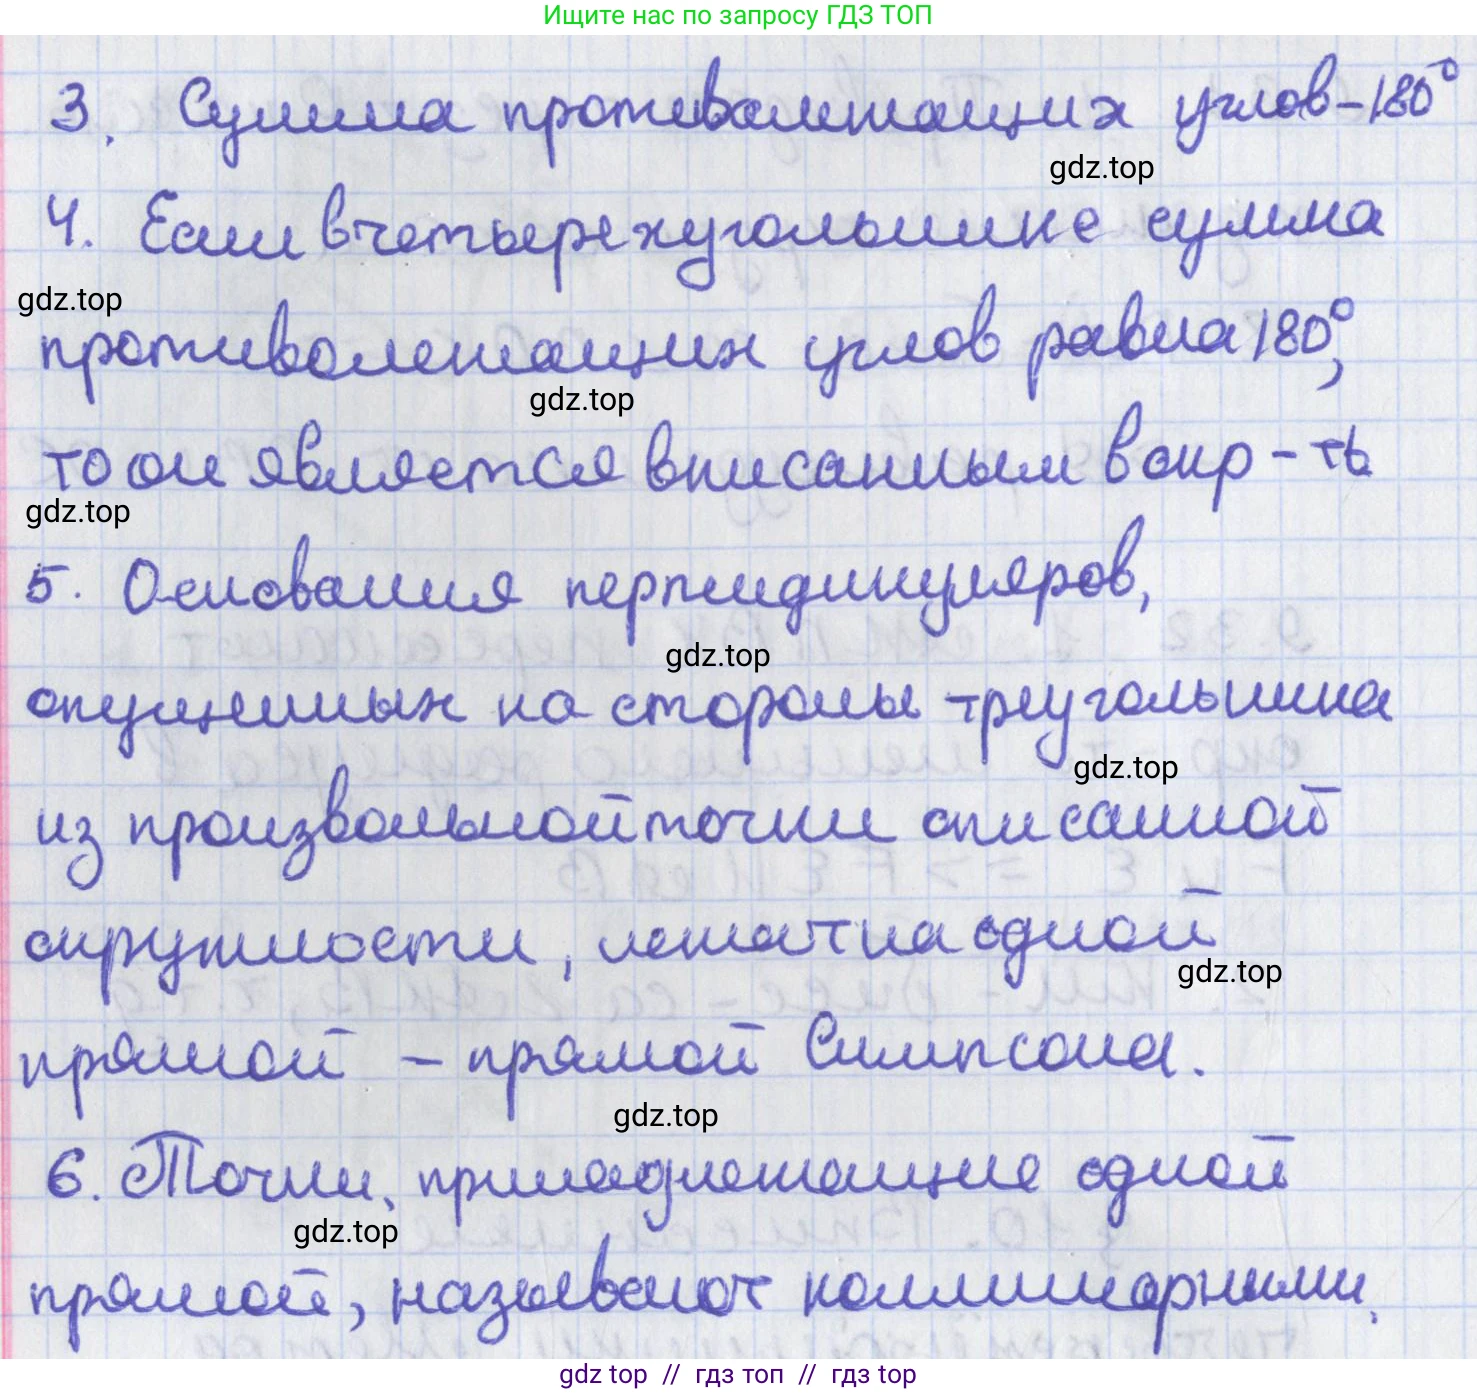 Ищите нас по запросу ГДЗ ТОП
3. Сумма противолежащих углов - 180°
gdz.top
4. Если в четырехугольнике сумма
gdz.top
противолежащих углов равна 180°,
gdz.top
то он является вписанным в окр-ть
gdz.top
5. Основания перпендикуляров,
gdz.top
опущенных на стороны треугольника
gdz.top
из произвольной точки описанной
окружности, лежат на одной
gdz.top
прямой – прямой Симпсона.
gdz.top
6. Точки, принадлежащие одной
gdz.top
прямой, называют коллинеарными.
gdz top // гдз топ // гдз top